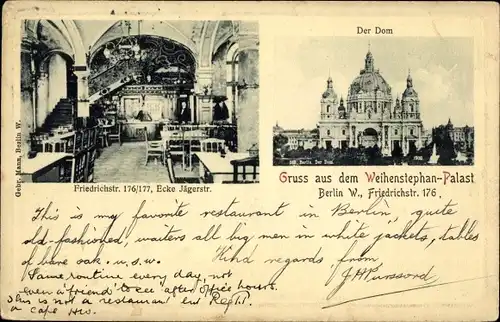 Der Dom
Gebr. Mann, Berlin W.
Berlin. Der Dom
Friedrichstr. 176/177, Ecke Jägerstr.
Gruss aus dem Weihenstephan-Palast
Berlin W., Friedrichstr. 176.
This is my favorite restaurant in Berlin, quite
old-fashioned, waiters all big men in white jackets, tables
of bare oak. u.s.w. Kind regards from
Same routine every day, not
even a "friend" to see after office hours.
This is not a restaurant but
a cafe